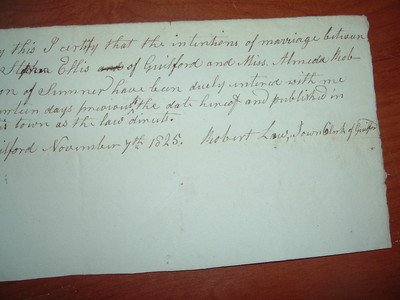 y this I certify that the intentions of marriage between
Stephen Ellis and of Guilford and Miss. Almeda Rob-
on of Sumner have been duely entered with me
urteen days previous to the date hereof and published in
is town as the law directs.
uilford November 7th. 1825. Robert Law, Town Clerk of Guilford